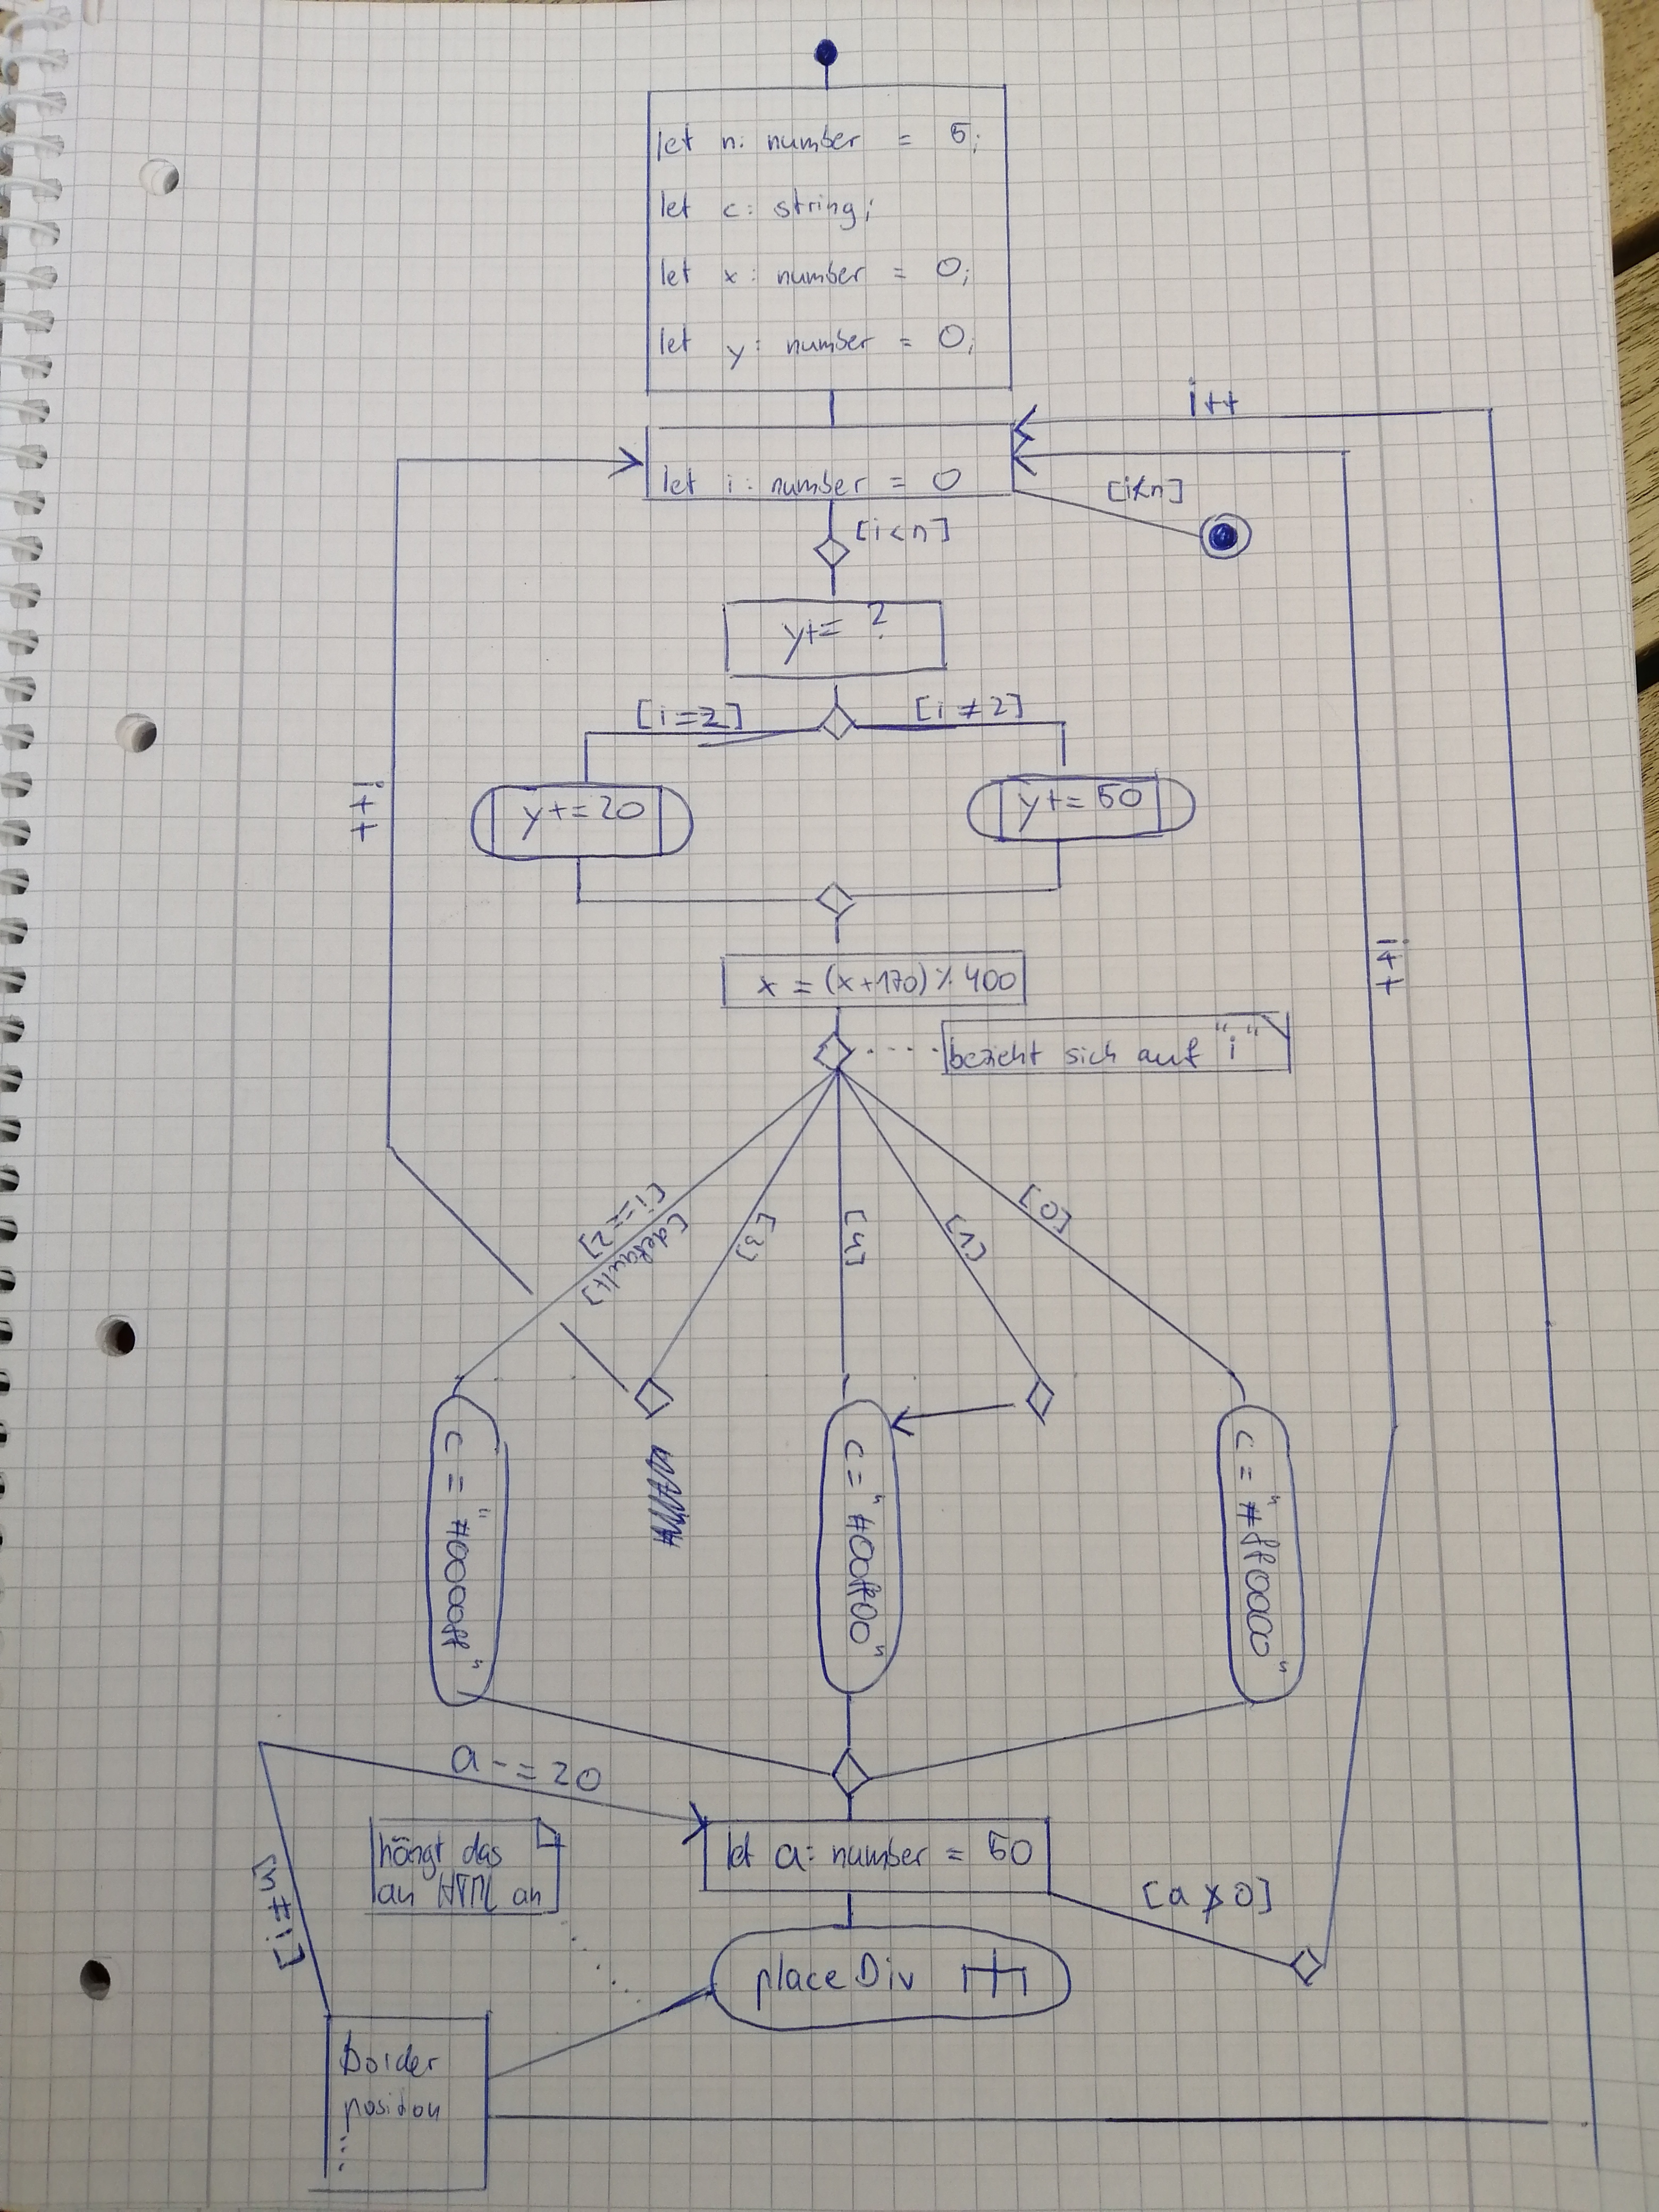 let n: number = 5;
let c: string;
let x: number = 0;
let y: number = 0;
i++
let i: number = 0
[i≮n]
[i<n]
y+= ?
[i=2]
[i≠2]
i++
y+=20
y+=50
i++
x = (x+170)%400
bezieht sich auf "i"
[i==2]
[default]
[3]
[4]
[1]
[0]
c = "#0000ff"
c = "#00ff00"
c = "#ff0000"
a-=20
hängt das
an HTML an
let a: number = 50
[a≯0]
[i≠n]
placeDiv
Border
position
...